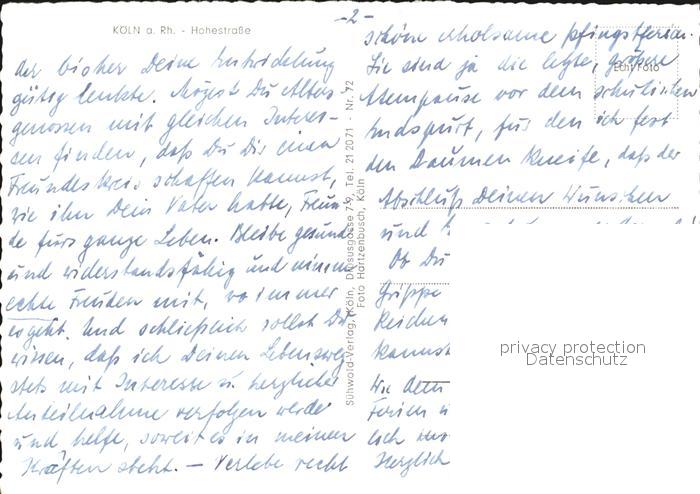 KÖLN a. Rh. - Hohestraße
-2-
der bisher Deine Entwicklung
gütig lenkte. Mögest Du Alters-
genossen mit gleichen Interes-
sen finden, daß Du Dir einen
Freundeskreis schaffen kannst,
wie ihn Dein Vater hatte, Freun-
de fürs ganze Leben. Bleibe gesund
und widerstandsfähig und nimm
echte Freuden mit, wo immer
es geht. Und schließlich sollst Du
wissen, daß ich Deinen Lebensweg
stets mit Interesse u. herzlicher
Anteilnahme verfolgen werde
und helfe, soweit es in meinen
Kräften steht. — Verlebe recht
Sühwold-Verlag, Köln, Tel. 212071 - Nr. 72
Foto Hartzenbusch, Köln
schöne erholsame Pfingstferien.
Sie sind ja die letzte, größere
Atempause vor dem schulischen
Endspurt, für den ich fest
den Daumen kneife, daß der
Abschluß Deinen Wünschen
und
Ob Du
Grippe
Reichen
kannst
Wie dem
Ferien
lich
Herzlich
Echt Foto
privacy protection
Datenschutz